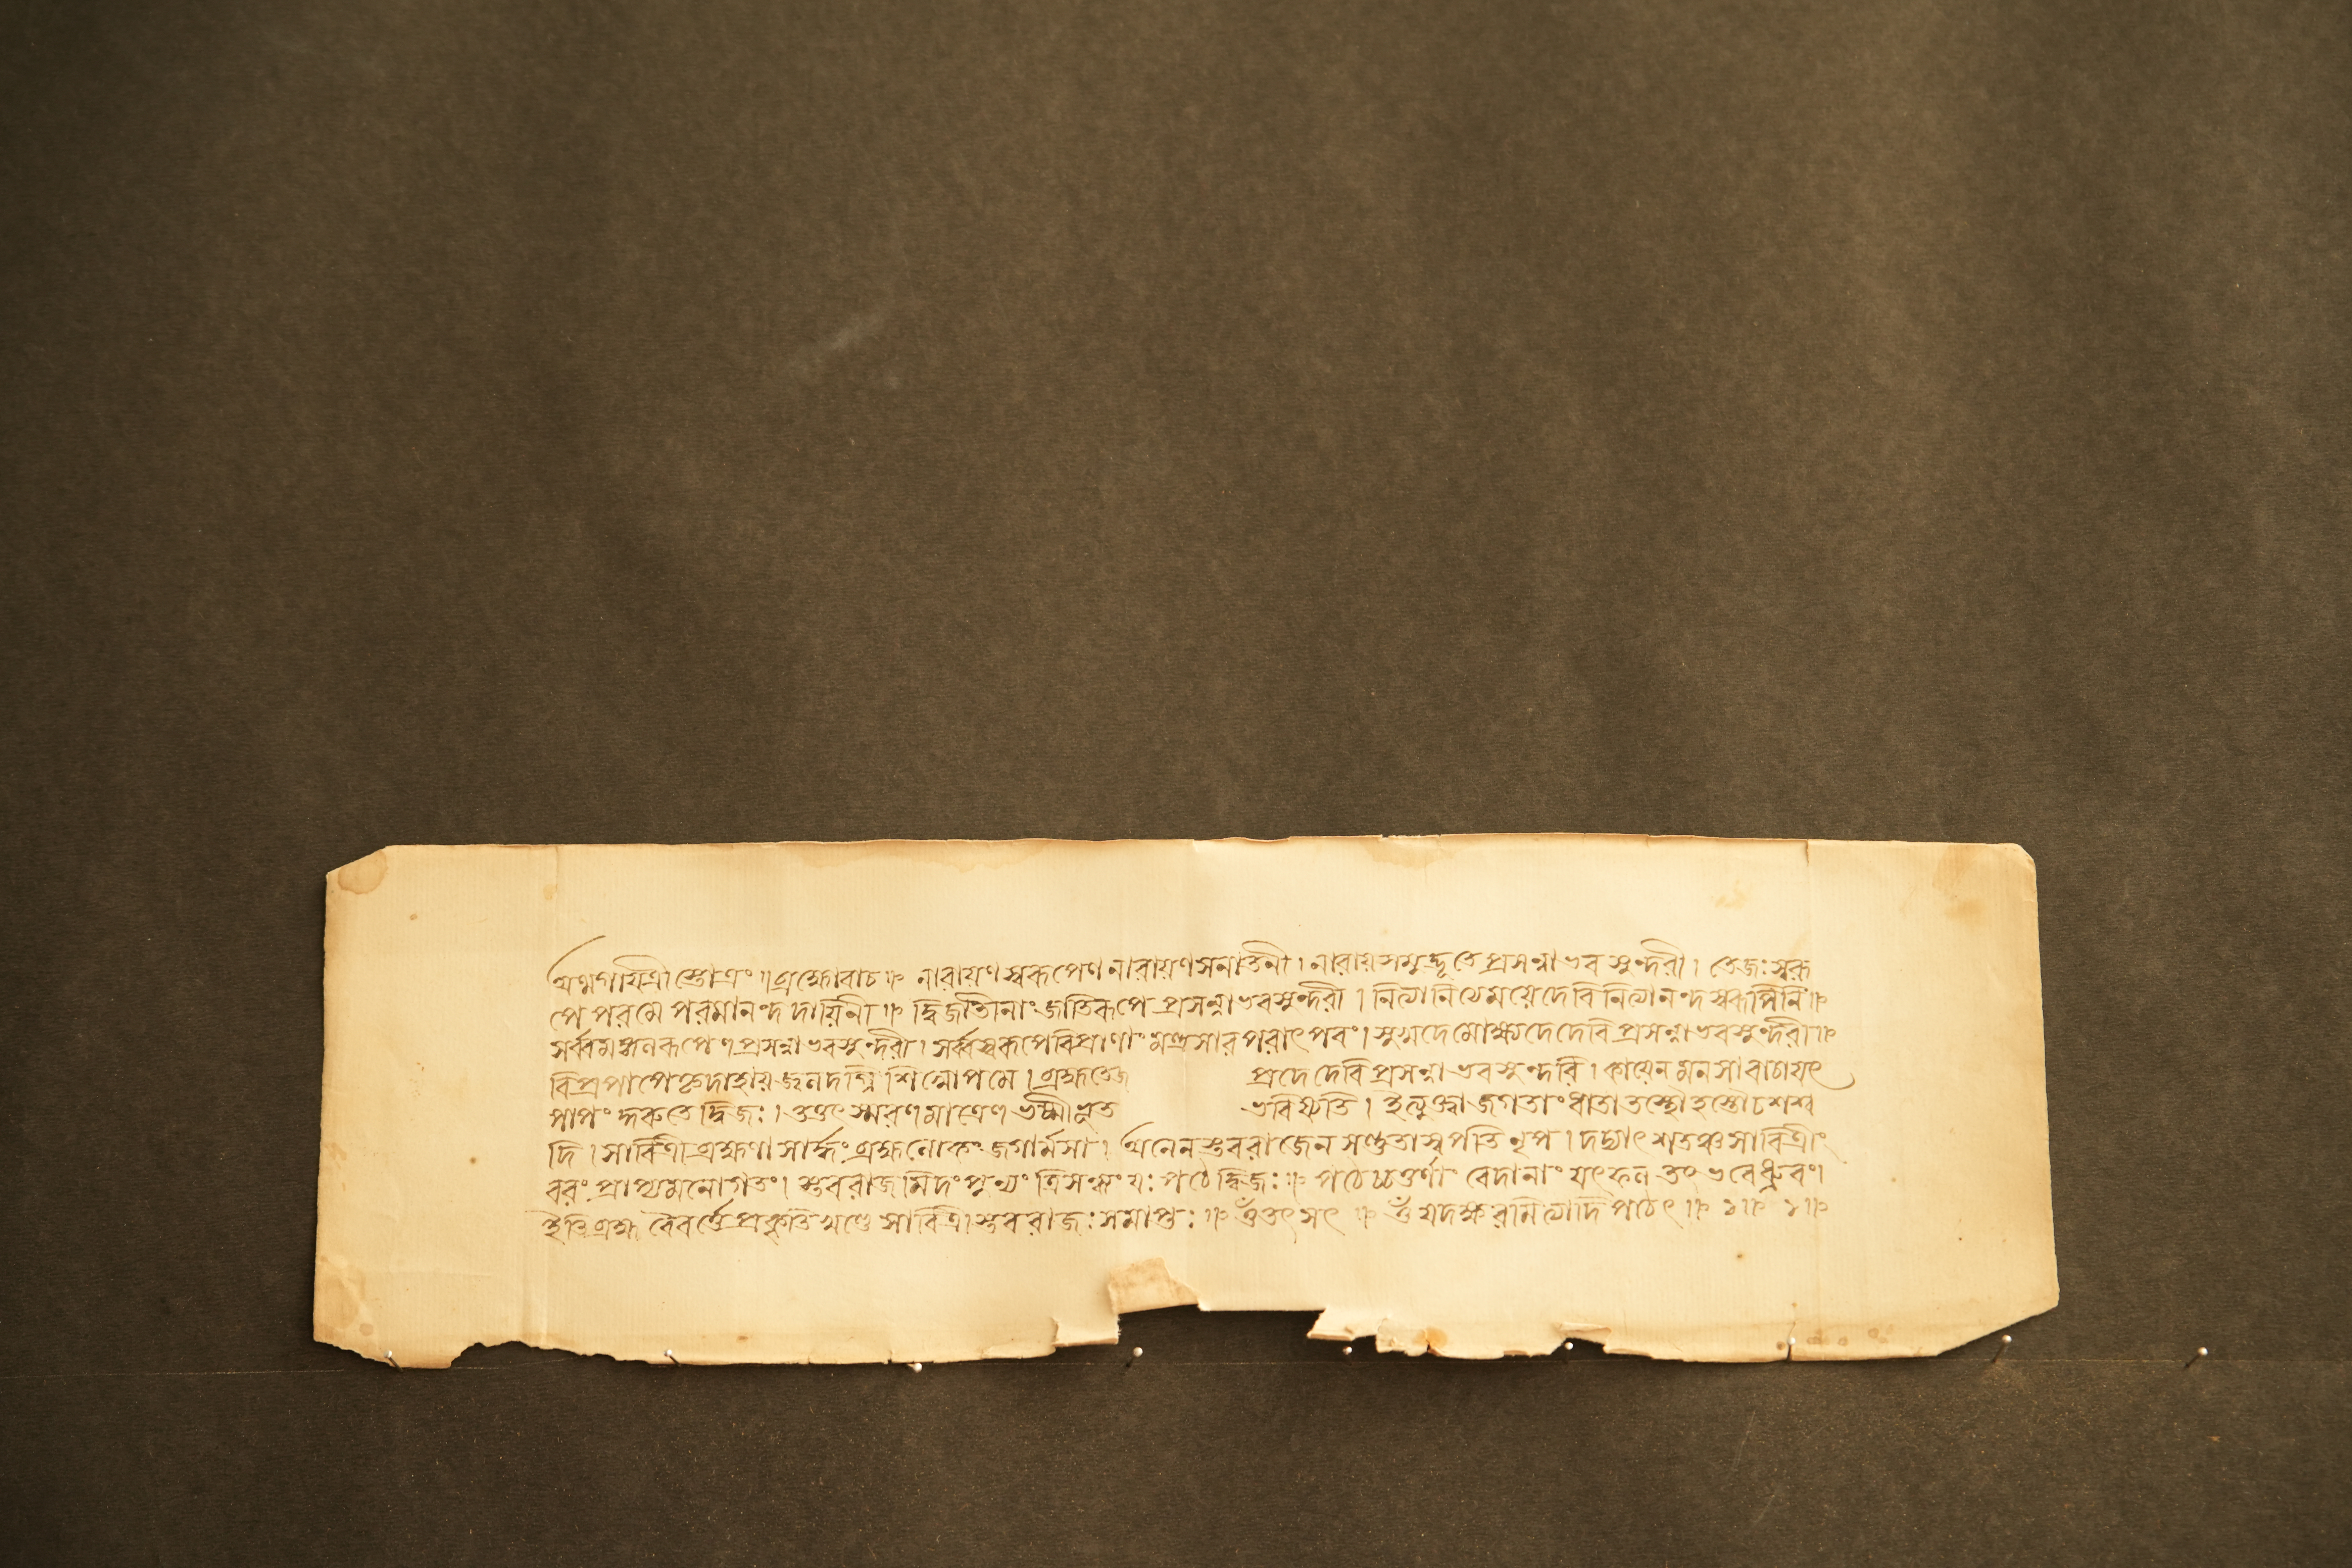 অথগায়ত্রীস্তোত্রং ॥ ব্রহ্মোবাচ ॥ নারায়ণস্বরূপেণ নারায়ণসনাতনী । নারায়সমুদ্ভূতে প্রসন্নাভবসুন্দরী । তেজঃস্বরূ
পে পরমে পরমানন্দদায়িনী ॥ দ্বিজাতীনাং জাতিরূপে প্রসন্নাভবসুন্দরী । নিত্যানিত্যেময়েদেবি নিত্যানন্দস্বরূপিনি ॥
সর্ব্বমঙ্গলরূপেণ প্রসন্নাভবসুন্দরী । সর্ব্বস্বরূপেবিপ্রাণাং মন্ত্রসারপরাৎপরং । সুখদেমোক্ষদেদেবি প্রসন্নাভবসুন্দরী ॥
বিপ্রপাপেধ্মদাহায় জলদগ্নিশিখোপমে । ব্রহ্মতেজ প্রদে দেবি প্রসন্নাভবসুন্দরি । কায়েন মনসা বাচা যৎ
পাপং কুরুতে দ্বিজঃ । তত্তৎ স্মরণমাত্রেণ ভস্মীভূত ভবিষ্যতি । ইত্যুক্ত্বা জগতাং ধাতা তস্থৌ হস্তৌ চ শশ্ব
দি । সাবিত্রী ব্রহ্মণা সার্দ্ধং ব্রহ্মলোকং জগাম সা । অনেন স্তবরাজেন সংস্তুতাস্বপতি নৃপ । দদ্যাৎ শতঞ্চ সাবিত্রীং
বরং প্রাপ্যমনোগতং । স্তবরাজমিদং পুণ্যং ত্রিসন্ধ্যং যঃ পঠেদ্দ্বিজঃ ॥ পঠেচ্চতুর্ণাং বেদানাং যৎফলং তৎ ভবেধ্রুবং ।
ইতি ব্রহ্ম বৈবর্ত্তে প্রকৃতিখণ্ডে সাবিত্রীস্তবরাজঃ সমাপ্তঃ ॥ ওঁতৎসৎ ॥ ওঁ যদক্ষরমিত্যাদি পঠেৎ ॥ ১ ॥ ১ ॥